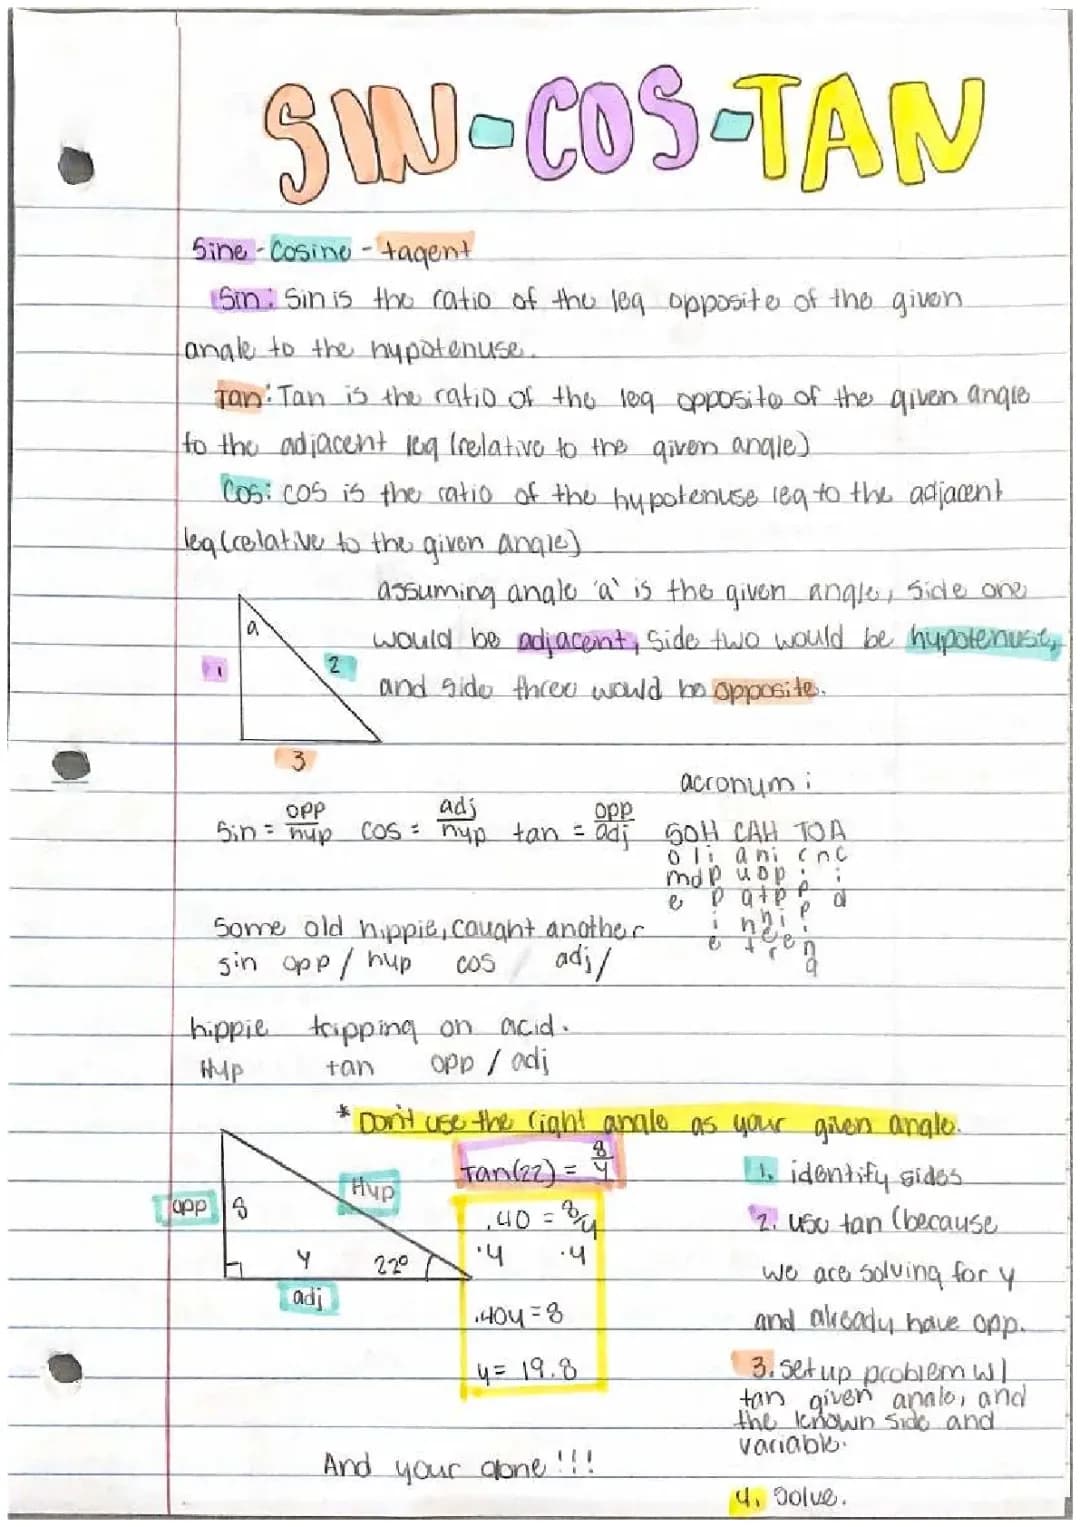 SIN-COS-TAN
Sine - Cosine - tagent
Sin: Sin is the ratio of the leg opposite of the given
angle to the hypotenuse.
Tan: Tan is the ratio of the leg opposite of the given angle
to the adjacent leg (relative to the given angle)
Cos: cos is the ratio of the hypotenuse leg to the adjacent
leg (relative to the given angle)
assuming angle 'a' is the given angle, side one
would be adjacent, side two would be hypotenuse,
and side three would be opposite.
a
1
2
3
acronym:
Sin = opp/hyp cos = adj/hyp tan = opp/adj
SOH CAH TOA
o l i a n i r n c
m d p u o p i i
e p g t p p d
i h h i p
e t e e i
r n
g
Some old hippie, caught another
sin opp / hyp cos adj /
hippie tripping on acid.
Hyp tan opp / adj
* Don't use the right angle as your given angle.
opp 8 Hyp
y 22°
adj
Tan(22) = 8/y
.40 = 8/y
·y ·y
.40y = 8
y = 19.8
1. identify sides
2. use tan (because
we are solving for y
and already have opp.
3. set up problem w/
tan given angle, and
the known side and
variable.
4. Solve.
And your done!!!